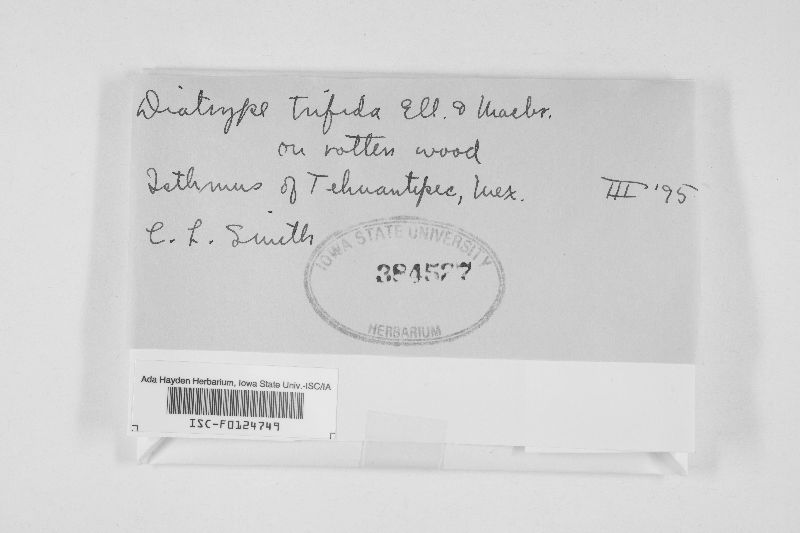 Diatrype trifida Ell. & Macbr.
on rotten wood
Isthmus of Tehuantepec, Mex. III '95
C. L. Smith
IOWA STATE UNIVERSITY
384527
HERBARIUM
Ada Hayden Herbarium, Iowa State Univ.-ISC/IA
ISC-F0124749